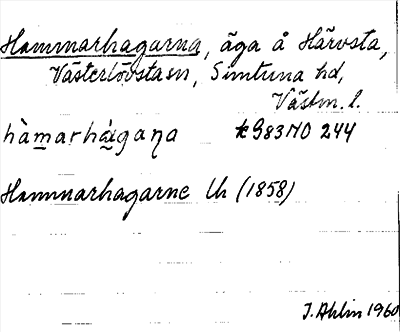 Hammarhagarna, äga å Härvsta,
Västerlövsta sn, Simtuna hd,
Västm. l.
hàm̲arhá̲gaṇa k G83NO 244
Hammarhagarne Uh (1858)
J. Ahlin 1960